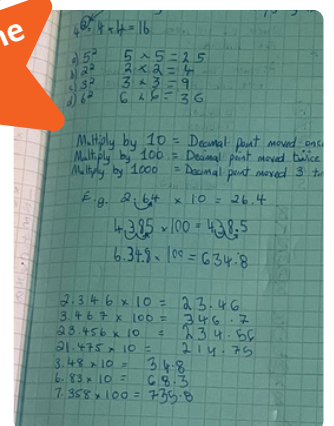 ne
4². 4 × 4 = 16
a) 5² 5 × 5 = 25
b) 2² 2 × 2 = 4
c) 3² 3 × 3 = 9
d) 6² 6 × 6 = 36
Multiply by 10 = Decimal point moved once
Multiply by 100 = Decimal point moved twice
Multiply by 1000 = Decimal point moved 3 tim
E.g. 2.64 × 10 = 26.4
4.385 × 100 = 438.5
6.348 × 100 = 634.8
2.346 × 10 = 23.46
3.467 × 100 = 346.7
23.456 × 10 = 234.56
21.475 × 10 = 214.75
3.48 × 10 = 34.8
6.83 × 10 = 68.3
7.358 × 100 = 735.8